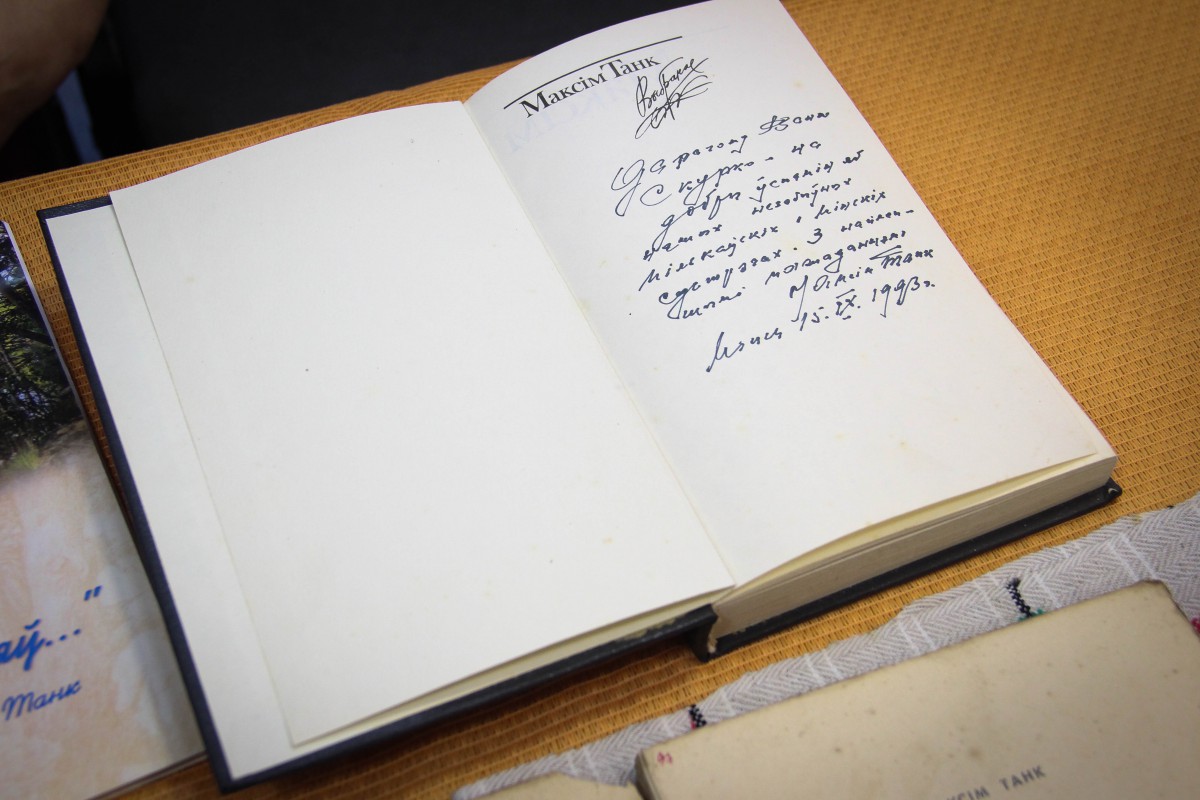 Максім Танк
Дарагому Вані
Скурко - на
добры ўспамін аб
нашых незабыўных
пількаўскіх і мінскіх
сустрэчах. З найлеп-
шымі пажаданнямі
Максім Танк
Мінск 15.IX.1993г.
аў..."
Танк
СІМ ТАНК